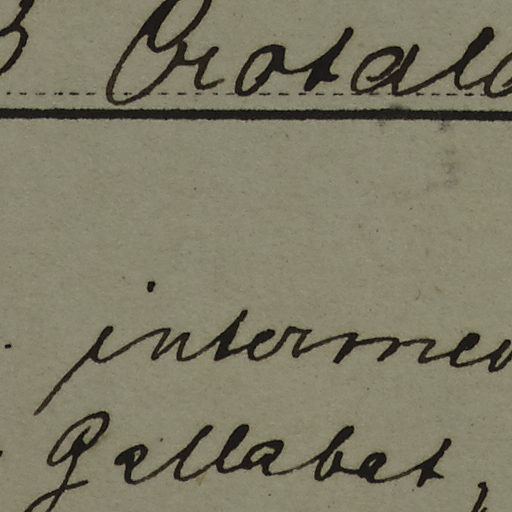 Crotala
intermed
Gallabat,